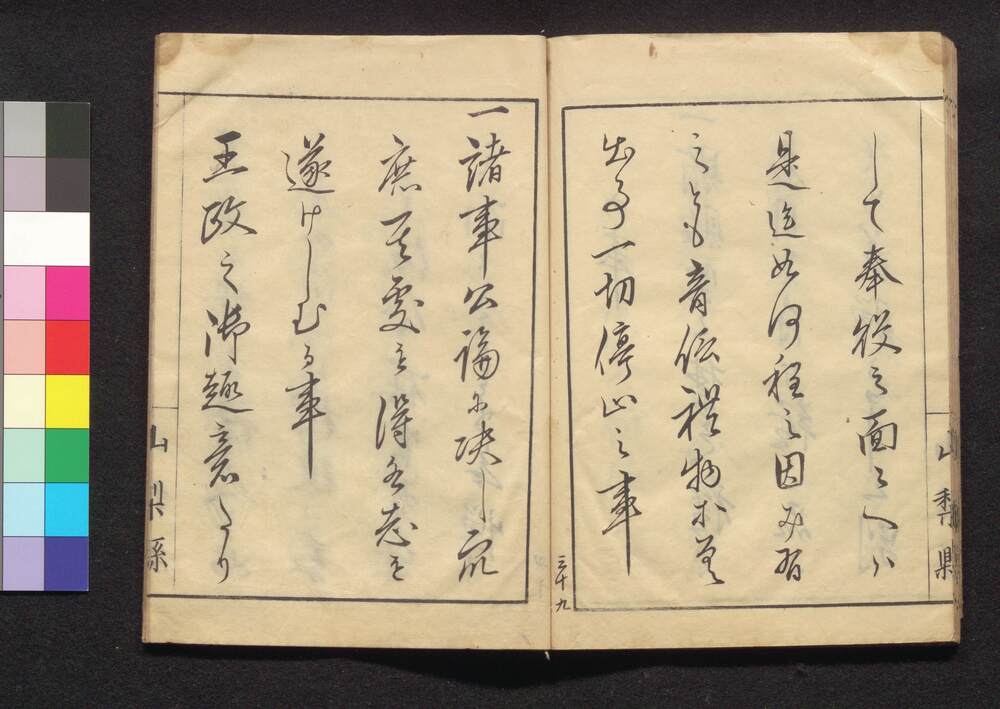 して奉役之面々へハ
是迄如何程之因み有
之とも音信礼物等差
出事一切停止之事
三十九
一諸事公論に決し衆
庶其処を得各志を
遂けしむる事
王政之御趣意たり
山梨県
山梨県